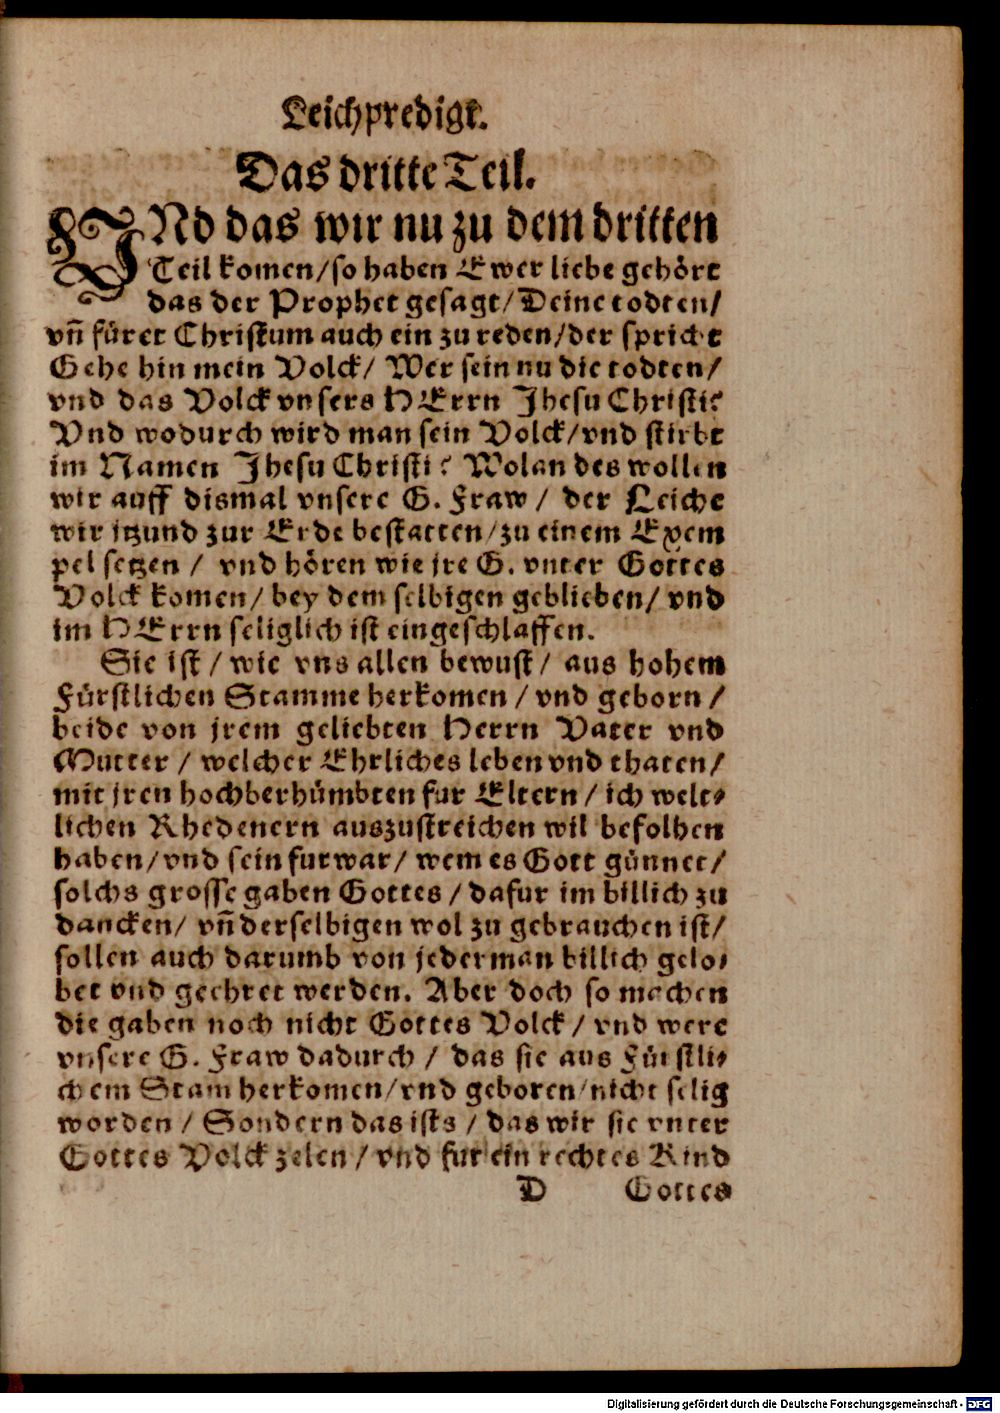 Leichpredigt.
Das dritte Teil.
VNd das wir nu zu dem dritten
Teil komen/so haben Ewer liebe gehört
das der Prophet gesagt/Deine todten/
vn̄ füret Christum auch ein zu reden/der spricht
Gehe hin mein Volck/ Wer sein nu die todten/
vnd das Volck vnsers HErrn Jhesu Christi?
Vnd wodurch wird man sein Volck/vnd stirbt
im Namen Jhesu Christi? Wolan des wollen
wir auff dismal vnsere G. Fraw / der Leiche
wir jtzund zur Erde bestatten/zu einem Exem
pel setzen / vnd hören wie jre G. vnter Gottes
Volck komen/ bey dem selbigen geblieben/ vnd
im HErrn seliglich ist eingeschlaffen.
Sie ist / wie vns allen bewust / aus hohem
Fürstlichen Stamme herkomen / vnd geborn /
beide von jrem geliebten Herrn Vater vnd
Mutter / welcher Ehrliches leben vnd thaten/
mit jren hochberhümbten fur Eltern / ich welt⸗
lichen Rhedenern auszustreichen wil befolhen
haben/vnd sein furwar/ wem es Gott günnet/
solchs grosse gaben Gottes / dafur im billich zu
dancken/ vn̄ derselbigen wol zu gebrauchen ist/
sollen auch darumb von jederman billich gelo⸗
bet vnd geehret werden. Aber doch so machen
die gaben noch nicht Gottes Volck / vnd were
vnsere G. Fraw dadurch / das sie aus Fürstli⸗
chem Stam herkomen/vnd geboren/nicht selig
worden / Sondern das ists / das wir sie vnter
Gottes Volck zelen / vnd fur ein rechtes Kind
D Gottes
Digitalisierung gefördert durch die Deutsche Forschungsgemeinschaft - DFG